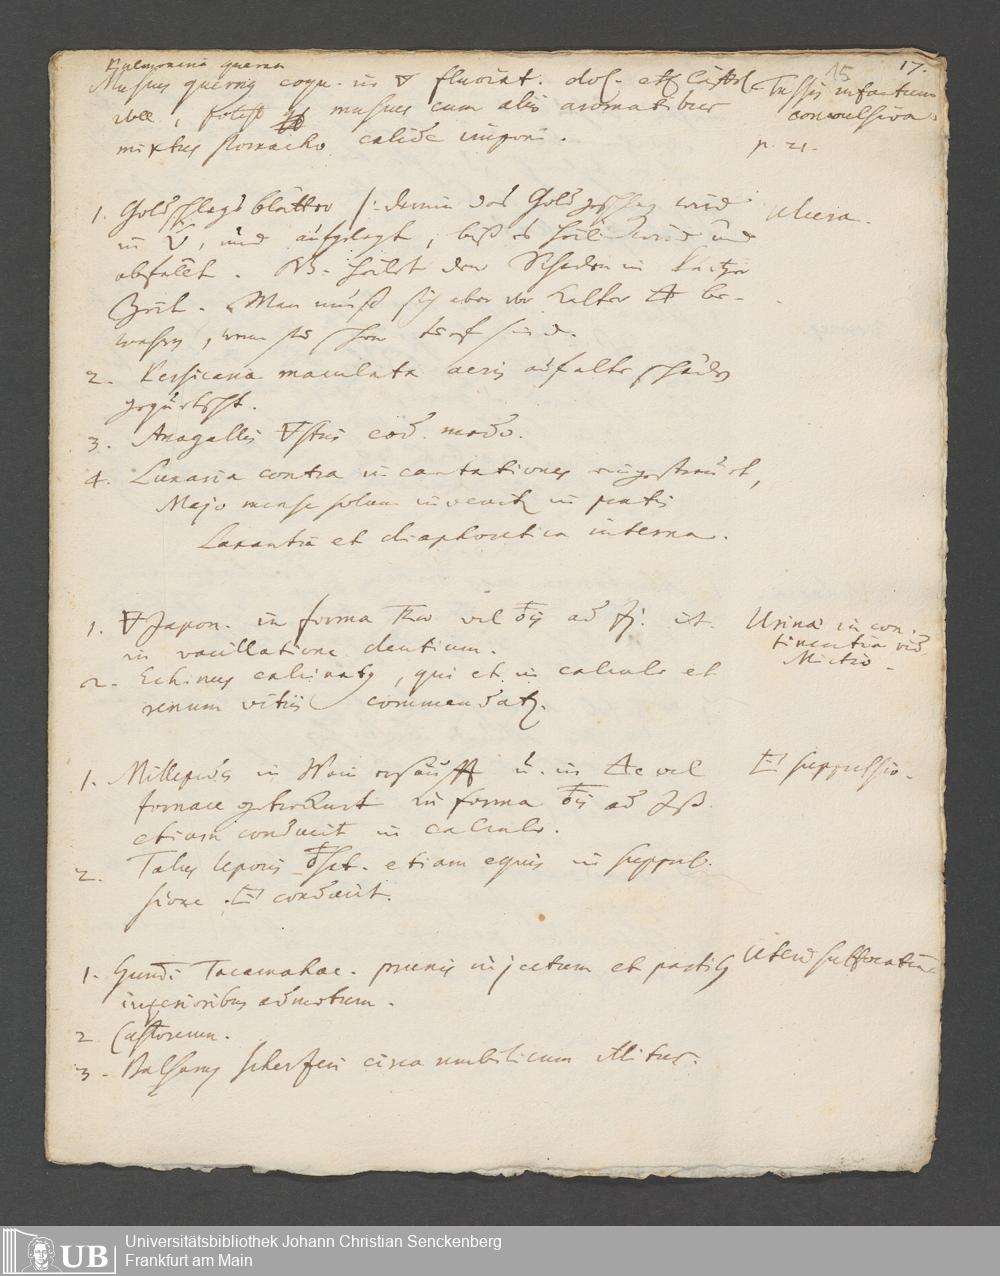 15 17.
Pulmonaria querna
Muscus quernus coqu. in ▽ fluviat. dos.
, potest muscus cum aliis aromatibus
mixtus stomacho calide imponi.
Tussis infantum
convulsiva.
p. 21.
1. Goldschlags blätter /: darin das Gold geschlagen wird
in, und aufgelegt, biß es heil wird und
abfällt. NB. heilet den Schaden in kurtzer
Zeit. Man muß sich aber vor kalter be-
wahren, wenn sie schon sind.
ulcera.
2. Persicaria maculata aeris auf alte schäden
gequetscht.
3. Anagallis eod. modo.
4. Lunaria contra incantationes eingestreut,
Majo mense solum invenitur in pratis
Laxantia et diaphoretica interna.
1. Japon. in forma vel ad ut.
in vacillatione dentium.
Urinae incon-
tinentia vid.
Mictio.
2. Echinus calcinatus, qui et in calculo et
renum vitiis commendatur.
1. Millepedes in Wein ersäufft u. in vel
fornace getrocknet in forma ad
etiam conducit in calculo.
suppressio.
2. Talus leporis. etiam equis in suppres-
sione conducit.
1. Gummi Tacamahac. prunis injectum et partibus
inferioribus admotum.
Uteri suffocatio
2 Castoreum.
3. Balsamus Scherzeri circa umbilicum illitus.
Universitätsbibliothek Johann Christian Senckenberg
Frankfurt am Main
UB